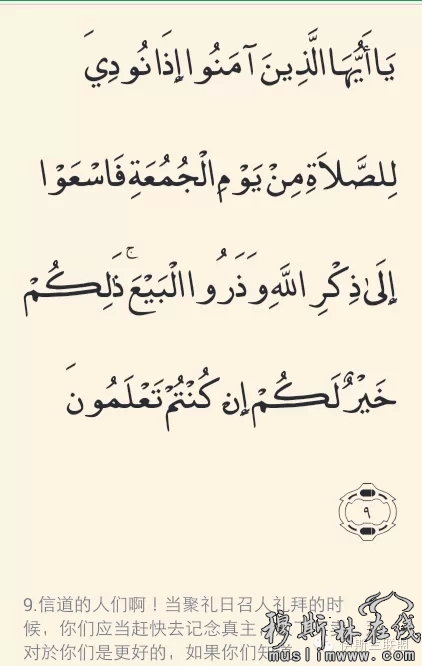 يَا أَيُّهَا الَّذِينَ آمَنُوا إِذَا نُودِيَ
لِلصَّلَاةِ مِنْ يَوْمِ الْجُمُعَةِ فَاسْعَوْا
إِلَىٰ ذِكْرِ اللَّهِ وَذَرُوا الْبَيْعَ ۚ ذَٰلِكُمْ
خَيْرٌ لَكُمْ إِنْ كُنْتُمْ تَعْلَمُونَ
٩
9.信道的人们啊！当聚礼日召人礼拜的时
候，你们应当赶快去记念真主
对於你们是更好的，如果你们知道
穆斯林在线
muslimwww.com